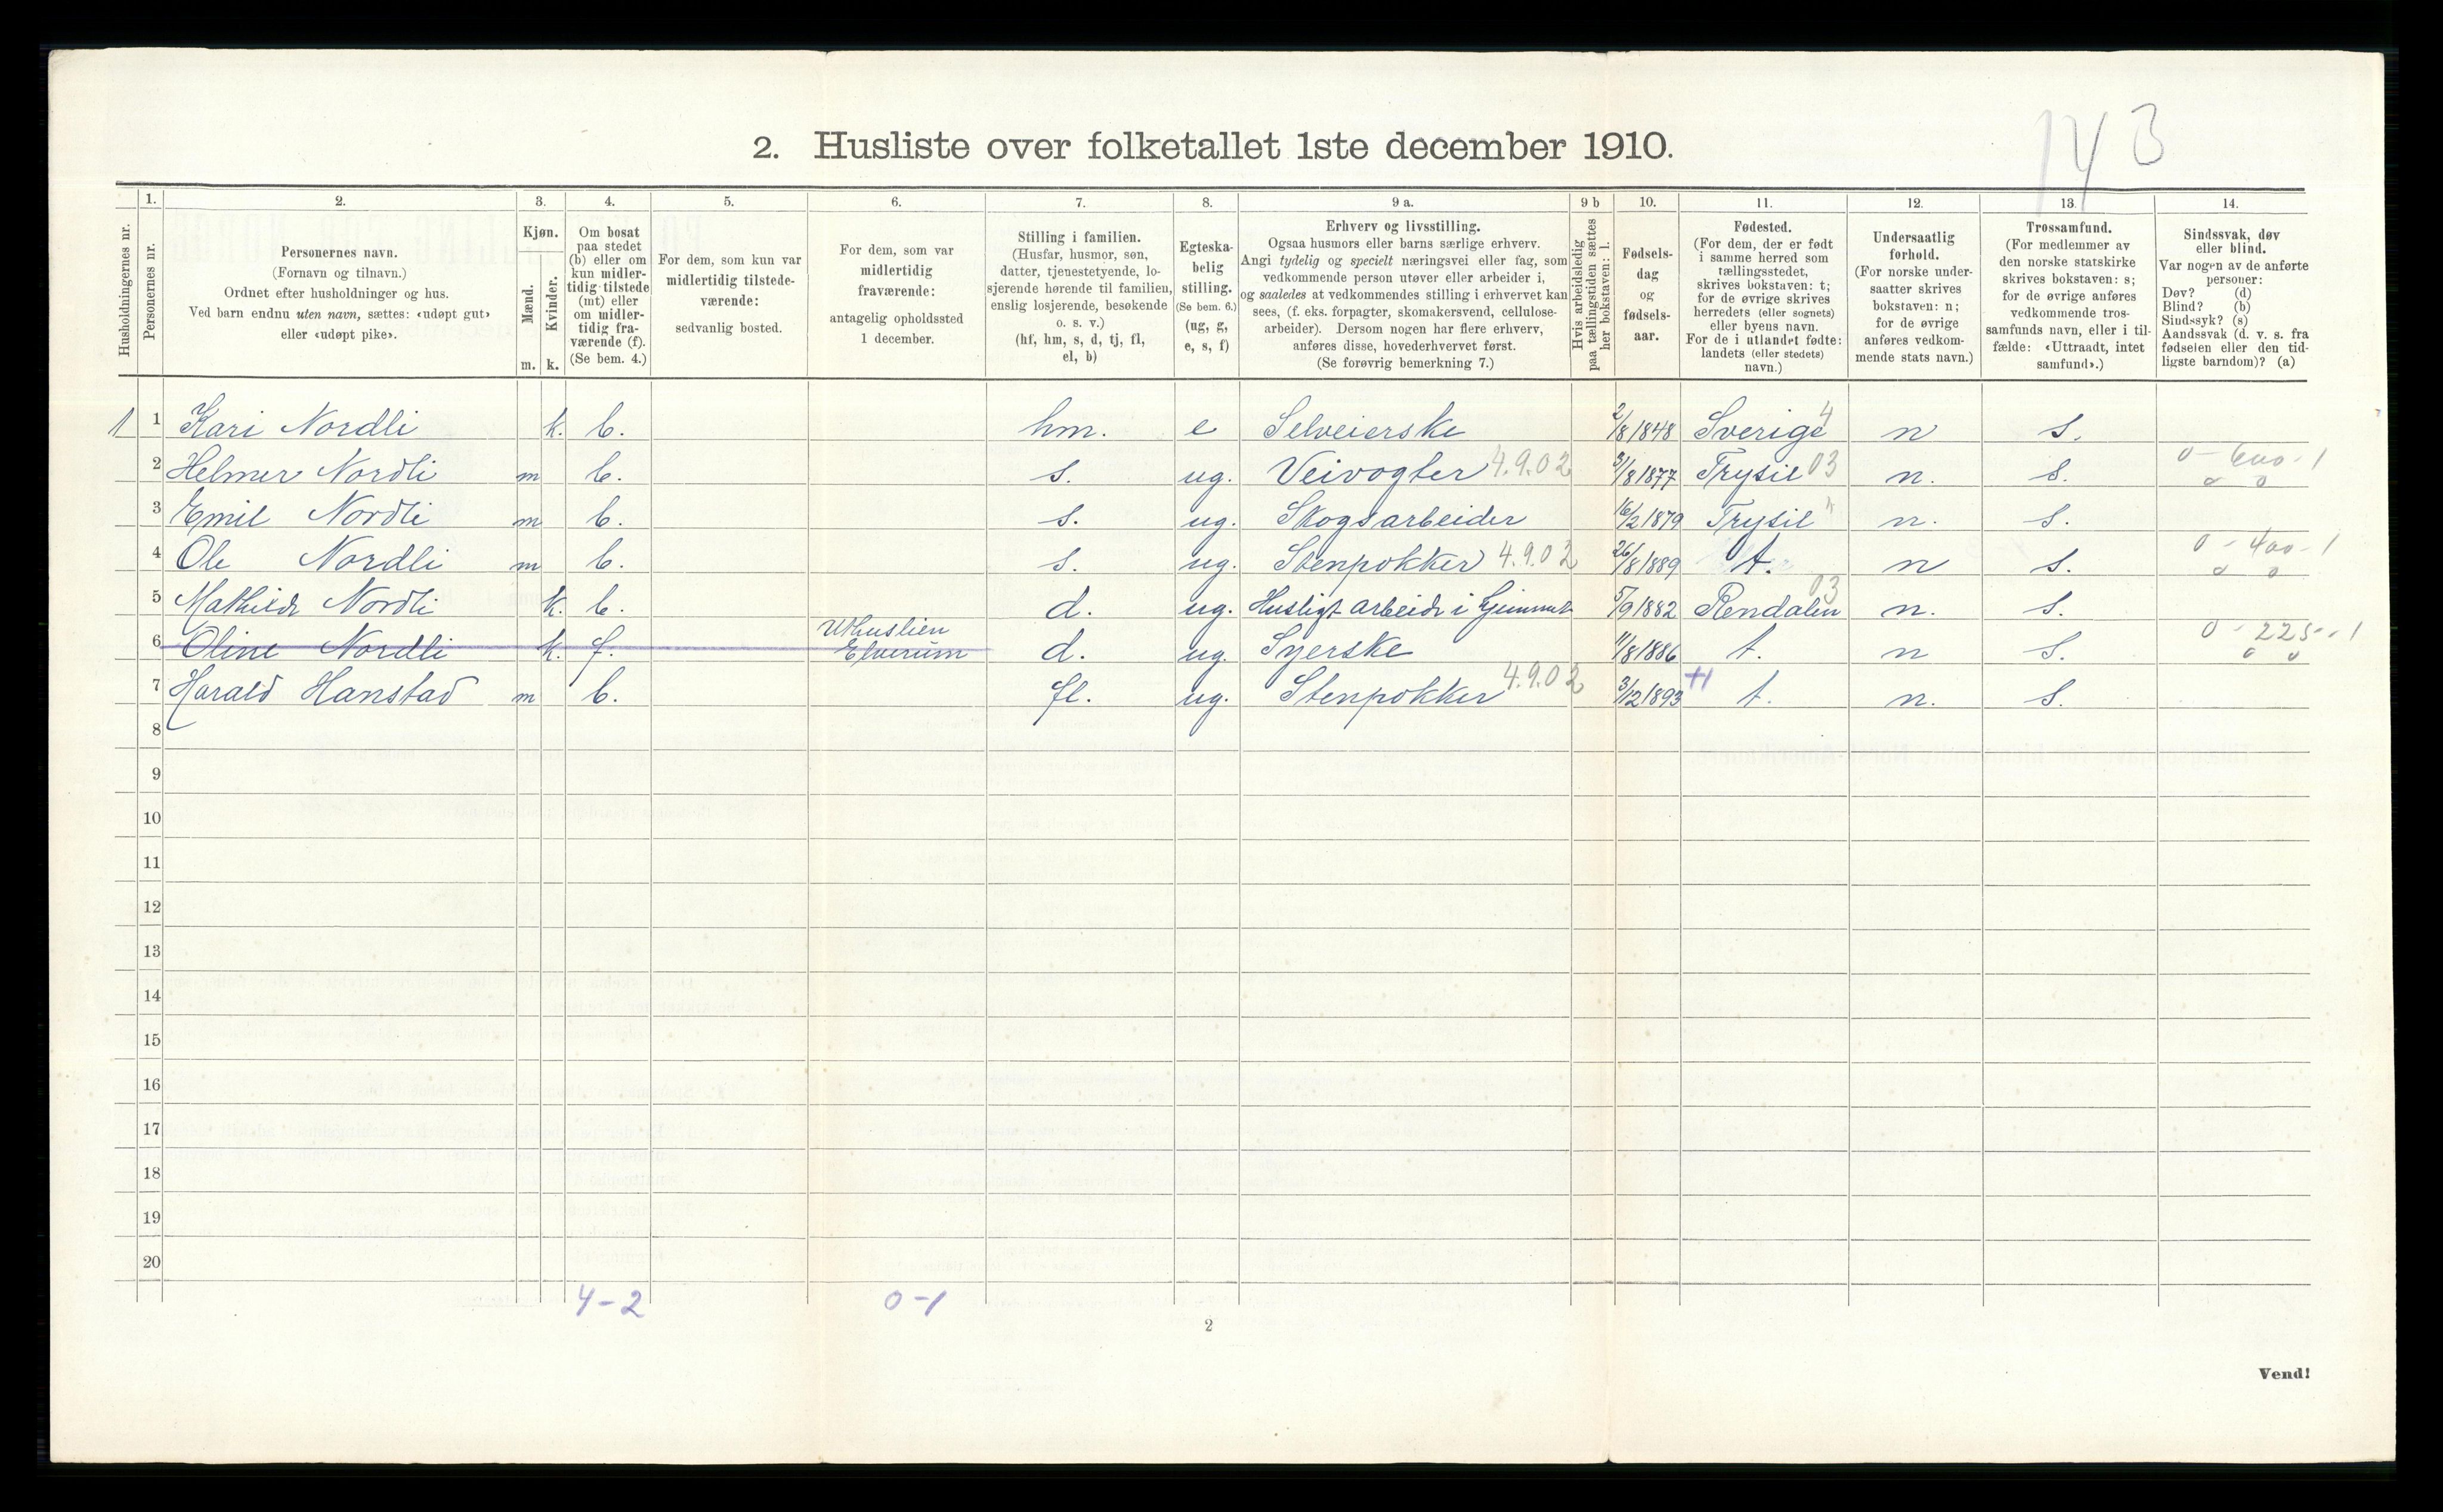 143
2. Husliste over folketallet 1ste december 1910.
Husholdningernes nr.
1.
Personernes nr.
2.
Personernes navn.
(Fornavn og tilnavn.)
Ordnet efter husholdninger og hus.
Ved barn endnu uten navn, sættes: «udøpt gut»
eller «udøpt pike».
3.
Kjøn.
Mænd.
Kvinder.
m. k.
4.
Om bosat
paa stedet
(b) eller om
kun midler-
tidig tilstede
(mt) eller
om midler-
tidig fra-
værende (f).
(Se bem. 4.)
5.
For dem, som kun var
midlertidig tilstede-
værende:
sedvanlig bosted.
6.
For dem, som var
midlertidig
fraværende:
antagelig opholdssted
1 december.
7.
Stilling i familien.
(Husfar, husmor, søn,
datter, tjenestetyende, lo-
sjerende hørende til familien,
enslig losjerende, besøkende
o. s. v.)
(hf, hm, s, d, tj, fl,
el, b)
8.
Egteska-
belig
stilling.
(Se bem. 6.)
(ug, g,
e, s, f)
9 a.
Erhverv og livsstilling.
Ogsaa husmors eller barns særlige erhverv.
Angi tydelig og specielt næringsvei eller fag, som
vedkommende person utøver eller arbeider i,
og saaledes at vedkommendes stilling i erhvervet kan
sees, (f. eks. forpagter, skomakersvend, cellulose-
arbeider). Dersom nogen har flere erhverv,
anføres disse, hovederhvervet først.
(Se forøvrig bemerkning 7.)
9 b
Hvis arbeidsledig
paa tællingstiden sættes
her bokstaven: l.
10.
Fødsels-
dag
og
fødsels-
aar.
11.
Fødested.
(For dem, der er født
i samme herred som
tællingsstedet,
skrives bokstaven: t;
for de øvrige skrives
herredets (eller sognets)
eller byens navn.
For de i utlandet fødte:
landets (eller stedets)
navn.)
12.
Undersaatlig
forhold.
(For norske under-
saatter skrives
bokstaven: n;
for de øvrige
anføres vedkom-
mende stats navn.)
13.
Trossamfund.
(For medlemmer av
den norske statskirke
skrives bokstaven: s;
for de øvrige anføres
vedkommende tros-
samfunds navn, eller i til-
fælde: «Uttraadt, intet
samfund».)
14.
Sindssvak, døv
eller blind.
Var nogen av de anførte
personer:
Døv? (d)
Blind? (b)
Sindssyk? (s)
Aandssvak (d. v. s. fra
fødselen eller den tid-
ligste barndom)? (a)
1 1 Kari Nordli k. b. hm. e Selveierske 2/8 1848 Sverige 4 n s.
2 Helmer Nordli m b. s. ug. Veivogter 4.9.02 3/8 1877 Trysil 03 n. s. 0-600-1
0 0
3 Emil Nordli m b. s. ug. Skogsarbeider 16/2 1879 Trysil " n. s.
4 Ole Nordli m b. s. ug. Stenpokker 4.9.02 26/8 1889 t. n s. 0-400-1
0 0
5 Mathilde Nordli k. b. d. ug. Husligt arbeide i hjemmet 5/9 1882 Rendalen 03 n. s.
6 Oline Nordli k. f. Uthuslien
Elverum d. ug. Syerske 11/8 1886 t. n s. 0-225-1
0 0
7 Harald Hanstad m b. fl. ug. Stenpokker 4.9.02 3/12 1893 +1 t. n. s.
8
9
10
11
12
13
14
15
16
17
18
19
20
4-2 0-1
2
Vend!